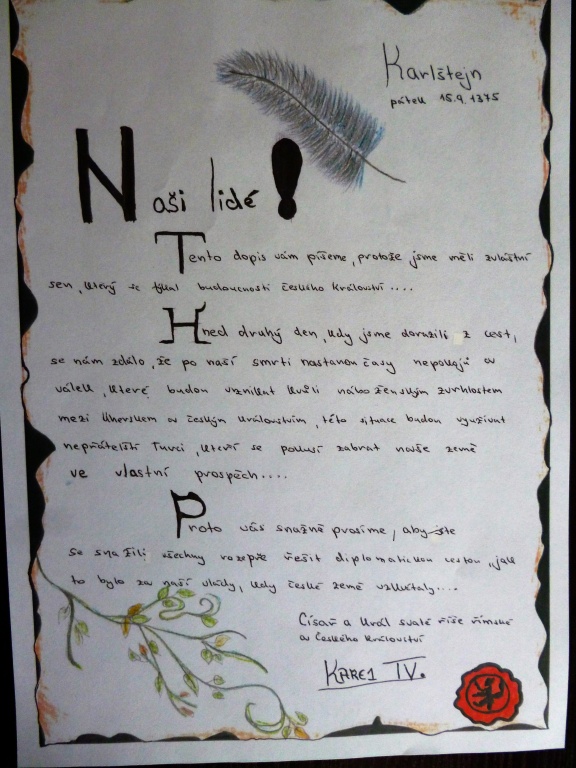 Karlštejn
pátek 15.9.1375
Naši lidé!
Tento dopis vám píšeme, protože jsme měli zvláštní
sen, který se týkal budoucnosti českého království....
Hned druhý den, kdy jsme dorazili z cest,
se nám zdálo, že po naší smrti nastanou časy nepokojů a
válek, které budou vznikat kvůli náboženským zvrhlostem
mezi Uherskem a českým královstvím, této situace budou využívat
nepřátelští Turci, kteří se pokusí zabrat naše země
ve vlastní prospěch....
Proto vás snažně prosíme, aby jste
se snažili všechny rozepře řešit diplomatickou cestou, jak
to bylo za naší vlády, kdy české země vzkvétaly....
Císař a král svaté říše římské
a českého království
Karel IV.